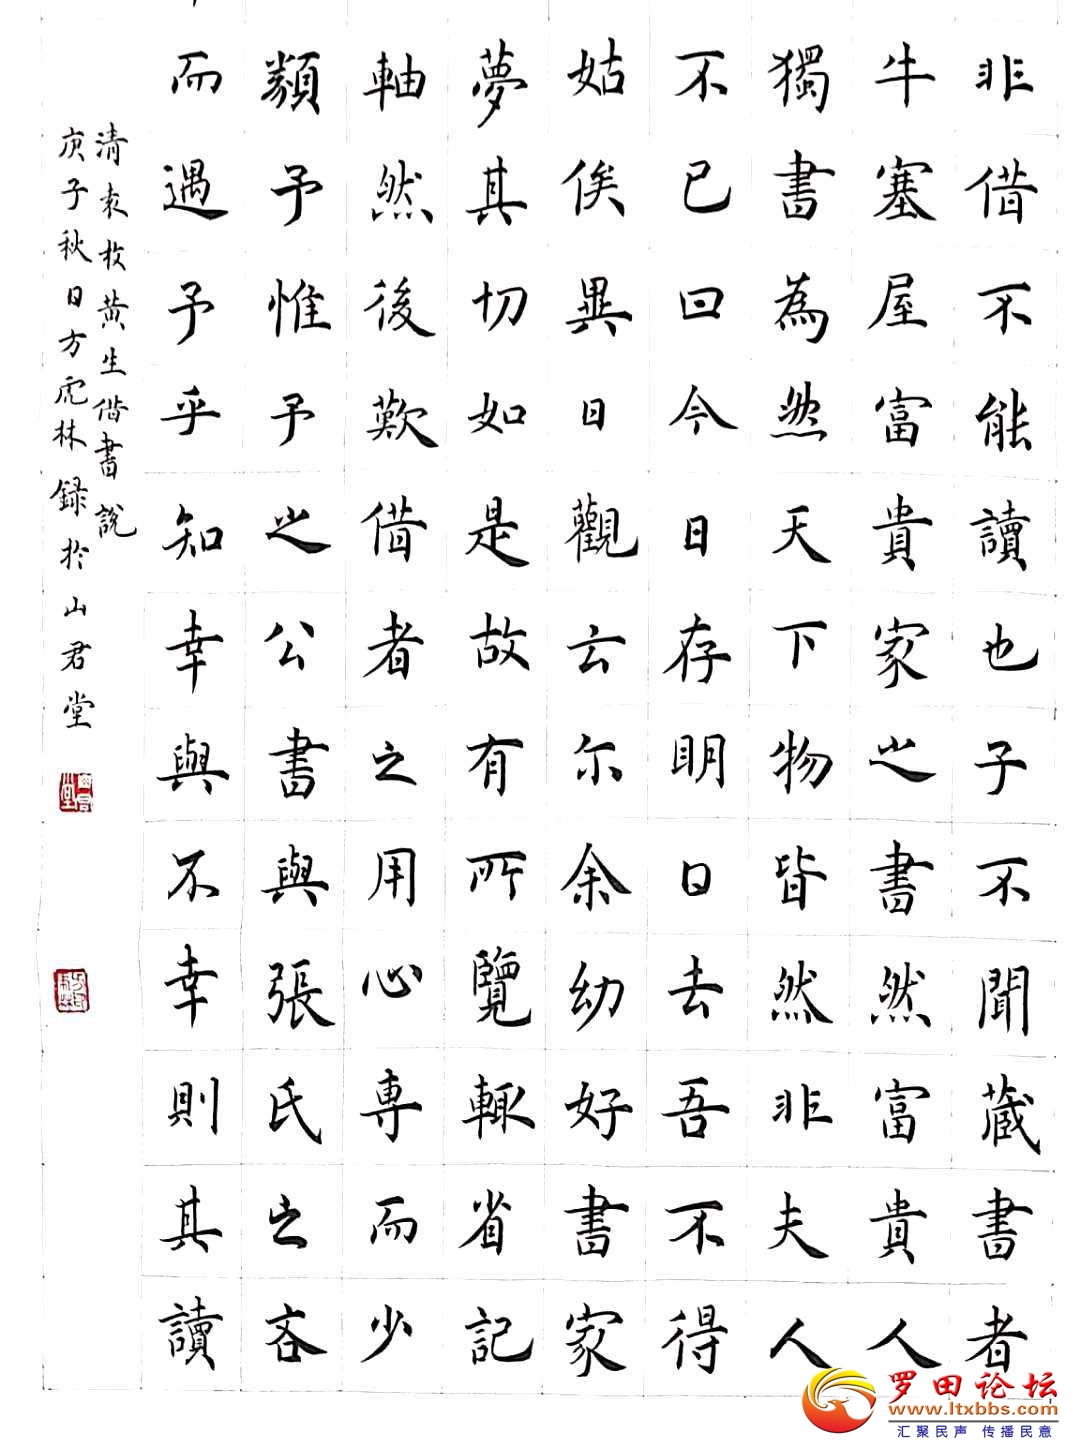 非借不能讀也子不聞藏書者
牛塞屋富貴家之書然富貴人
獨書為然天下物皆然非夫人
不已曰今日存明日去吾不得
姑俟異日觀云尔余幼好書家
夢其切如是故有所覽輒省記
軸然後歎借者之用心專而少
類予惟予之公書與張氏之吝
而遇予乎知幸與不幸則其讀
清袁枚黄生借書說
庚子秋日方虎林録於山君堂
罗田论坛
www.ltxbbs.com
汇聚民声 传播民意